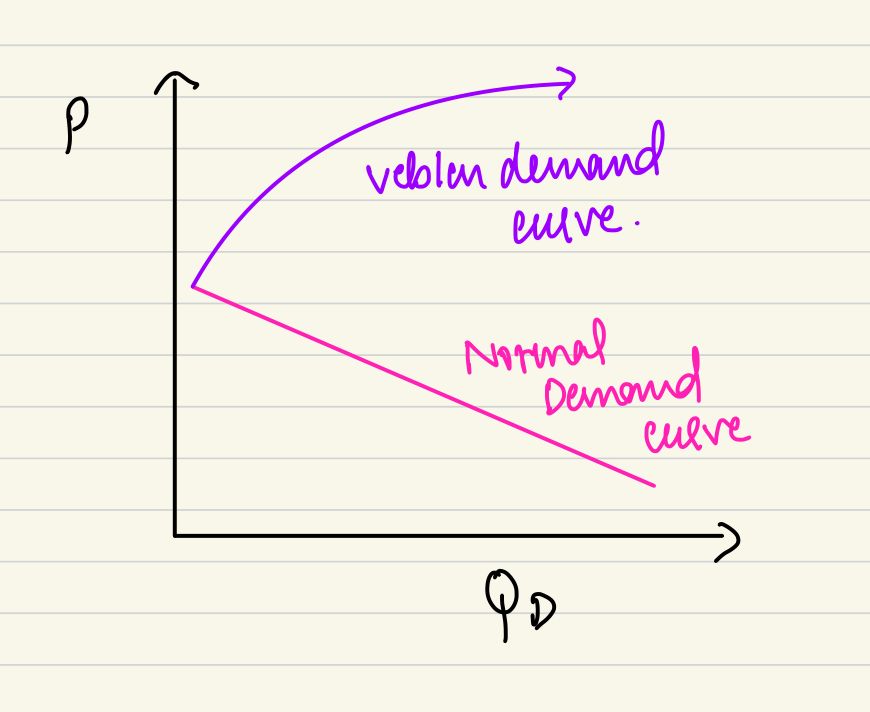 P
veblen demand
curve.
Normal
Demand
curve
QD